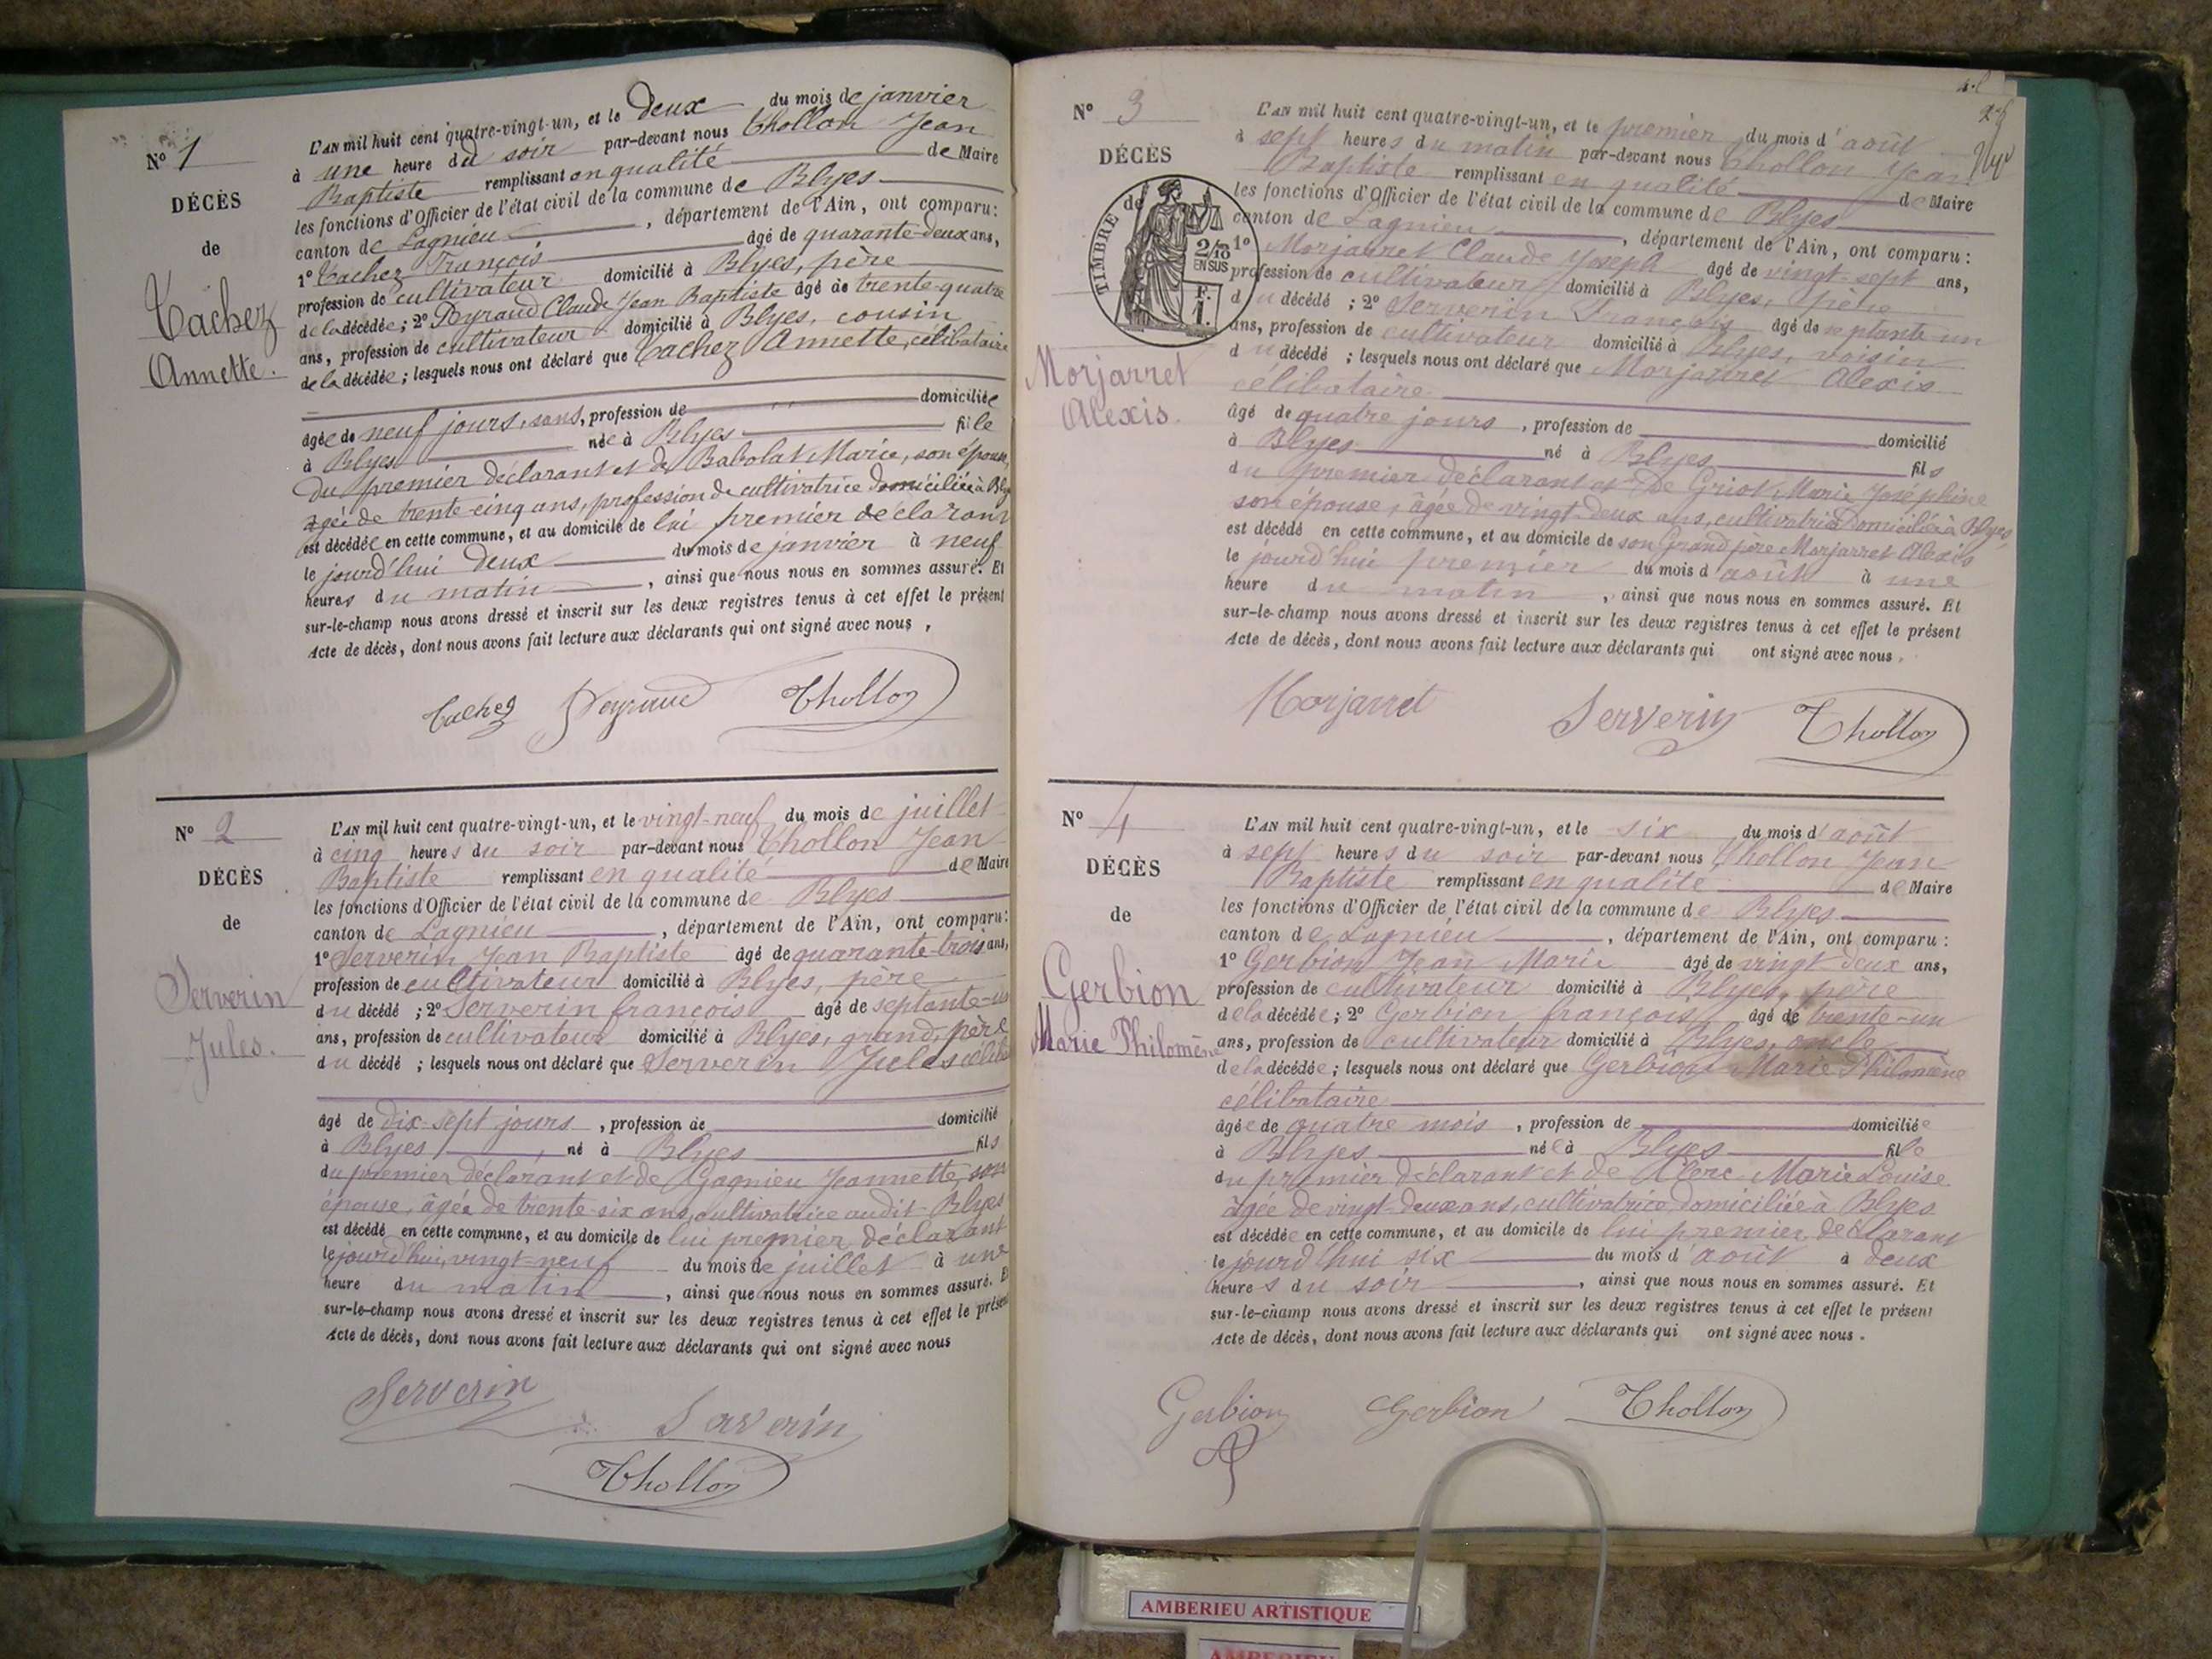 N° 1
DÉCÈS
de
Tachez
Annette.
L'AN mil huit cent quatre-vingt-un, et le deux du mois de janvier
à une heure du soir par-devant nous Thollon Jean
Baptiste remplissant en qualité de Maire
les fonctions d'Officier de l'état civil de la commune de Blyes
canton de Lagnieu, département de l'Ain, ont comparu:
1° Tachez François âgé de quarante-deux ans,
profession de cultivateur domicilié à Blyes, père
de la décédée; 2° Peyraud Claude Jean Baptiste âgé de trente-quatre
ans, profession de cultivateur domicilié à Blyes, cousin
de la décédée; lesquels nous ont déclaré que Tachez Annette, célibataire
âgée de neuf jours, sans, profession de domiciliée
à Blyes née à Blyes fille
du premier déclarant et de Babolat Marie, son épouse,
âgée de trente-cinq ans, profession de cultivatrice domiciliée à Blyes
est décédée en cette commune, et au domicile de lui premier déclarant
le jourd'hui deux du mois de janvier à neuf
heures du matin, ainsi que nous nous en sommes assuré. Et
sur-le-champ nous avons dressé et inscrit sur les deux registres tenus à cet effet le présent
Acte de décès, dont nous avons fait lecture aux déclarants qui ont signé avec nous,
Tachez Peyraud Thollon
N° 2
DÉCÈS
de
Serverin
Jules.
L'AN mil huit cent quatre-vingt-un, et le vingt-neuf du mois de juillet
à cinq heures du soir par-devant nous Thollon Jean
Baptiste remplissant en qualité de Maire
les fonctions d'Officier de l'état civil de la commune de Blyes
canton de Lagnieu, département de l'Ain, ont comparu:
1° Serverin Jean Baptiste âgé de quarante-trois ans,
profession de cultivateur domicilié à Blyes, père
du décédé; 2° Serverin françois âgé de septante-un
ans, profession de cultivateur domicilié à Blyes, grand, père
du décédé; lesquels nous ont déclaré que Serverin Jules
âgé de dix-sept jours, profession de domicilié
à Blyes né à Blyes fils
du premier déclarant et de Gagnieu Jeannette, son
épouse, âgée de trente-six ans, cultivatrice audit Blyes
est décédé en cette commune, et au domicile de lui premier déclarant
le jourd'hui, vingt-neuf du mois de juillet à une
heure du matin, ainsi que nous nous en sommes assuré. Et
sur-le-champ nous avons dressé et inscrit sur les deux registres tenus à cet effet le présent
Acte de décès, dont nous avons fait lecture aux déclarants qui ont signé avec nous
Serverin
Serverin
Thollon
N° 3
DÉCÈS
de
TIMBRE
2/10
EN SUS
Morjarret
Alexis.
L'AN mil huit cent quatre-vingt-un, et le premier du mois d'août
à sept heures du matin par-devant nous Thollon Jean
Baptiste remplissant en qualité de Maire
les fonctions d'Officier de l'état civil de la commune de Blyes
canton de Lagnieu, département de l'Ain, ont comparu:
1° Morjarret Claude Joseph âgé de vingt-sept ans,
profession de cultivateur domicilié à Blyes, père
du décédé; 2° Serverin François âgé de septante un
ans, profession de cultivateur domicilié à Blyes, voisin
du décédé; lesquels nous ont déclaré que Morjarret Alexis
célibataire
âgé de quatre jours, profession de domicilié
à Blyes né à Blyes fils
du premier déclarant et de Griot Marie Joséphine
son épouse, âgée de vingt-deux ans, cultivatrice domiciliée à Blyes,
est décédé en cette commune, et au domicile de son Grand père Morjarret Alexis
le jourd'hui premier du mois d'août à une
heure du matin, ainsi que nous nous en sommes assuré. Et
sur-le-champ nous avons dressé et inscrit sur les deux registres tenus à cet effet le présent
Acte de décès, dont nous avons fait lecture aux déclarants qui ont signé avec nous.
Morjarret Serverin Thollon
N° 4
DÉCÈS
de
Gerbion
Marie Philomène
L'AN mil huit cent quatre-vingt-un, et le six du mois d'août
à sept heures du soir par-devant nous Thollon Jean
Baptiste remplissant en qualité de Maire
les fonctions d'Officier de l'état civil de la commune de Blyes
canton de Lagnieu, département de l'Ain, ont comparu:
1° Gerbion Jean Marie âgé de vingt deux ans,
profession de cultivateur domicilié à Blyes, père
de la décédée; 2° Gerbion françois âgé de trente-un
ans, profession de cultivateur domicilié à Blyes, oncle
de la décédée; lesquels nous ont déclaré que Gerbion Marie Philomène
célibataire
âgée de quatre mois, profession de domiciliée
à Blyes née à Blyes fille
du premier déclarant et de Clerc Marie Louise
âgée de vingt-deux ans, cultivatrice domiciliée à Blyes
est décédée en cette commune, et au domicile de lui premier déclarant
le jourd'hui six du mois d'août à deux
heures du soir, ainsi que nous nous en sommes assuré. Et
sur-le-champ nous avons dressé et inscrit sur les deux registres tenus à cet effet le présent
Acte de décès, dont nous avons fait lecture aux déclarants qui ont signé avec nous.
Gerbion Gerbion Thollon
AMBERIEU ARTISTIQUE
AMBERIEU